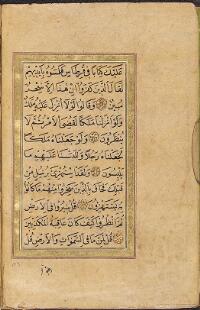 عَلَيْكَ كِتَابًا فِي قِرْطَاسٍ فَلَمَسُوهُ بِأَيْدِيهِمْ
لَقَالَ الَّذِينَ كَفَرُوا إِنْ هَذَا إِلَّا سِحْرٌ
مُبِينٌ وَقَالُوا لَوْلَا أُنْزِلَ عَلَيْهِ مَلَكٌ
وَلَوْ أَنْزَلْنَا مَلَكًا لَقُضِيَ الْأَمْرُ ثُمَّ لَا
يُنْظَرُونَ وَلَوْ جَعَلْنَاهُ مَلَكًا
لَجَعَلْنَاهُ رَجُلًا وَلَلَبَسْنَا عَلَيْهِمْ مَا
يَلْبِسُونَ وَلَقَدِ اسْتُهْزِئَ بِرُسُلٍ مِنْ
قَبْلِكَ فَحَاقَ بِالَّذِينَ سَخِرُوا مِنْهُمْ مَا كَانُوا
بِهِ يَسْتَهْزِئُونَ قُلْ سِيرُوا فِي الْأَرْضِ
ثُمَّ انْظُرُوا كَيْفَ كَانَ عَاقِبَةُ الْمُكَذِّبِينَ
قُلْ لِمَنْ مَا فِي السَّمَوَاتِ وَالْأَرْضِ قُلْ